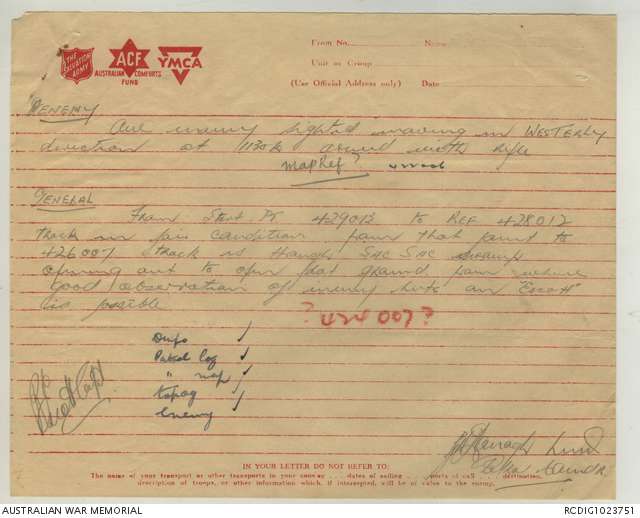 THE SALVATION ARMY
ACF
AUSTRALIAN COMFORTS FUND
YMCA
From No. Name
Unit or Group
(Use Official Address only) Date
ENEMY
One enemy sighted moving in WESTERLY
direction at 1130 armed with rifle
Map Ref?
GENERAL
From Start Pt 429013 to REF 428012
track in condition from that point to
426007 track is SAC SAC swamp
opening out to open flat ground from where
good observation of enemy huts
is possible
? 424 007 ?
Dispo ✓
Patrol log ✓
" map ✓
Topog ✓
Enemy ✓
IN YOUR LETTER DO NOT REFER TO:
The name of your transport or other transports in your convoy . . . dates of sailing . . . ports of call . . . destination,
description of troops, or other information which, if intercepted, will be of value to the enemy.
AUSTRALIAN WAR MEMORIAL
RCDIG1023751